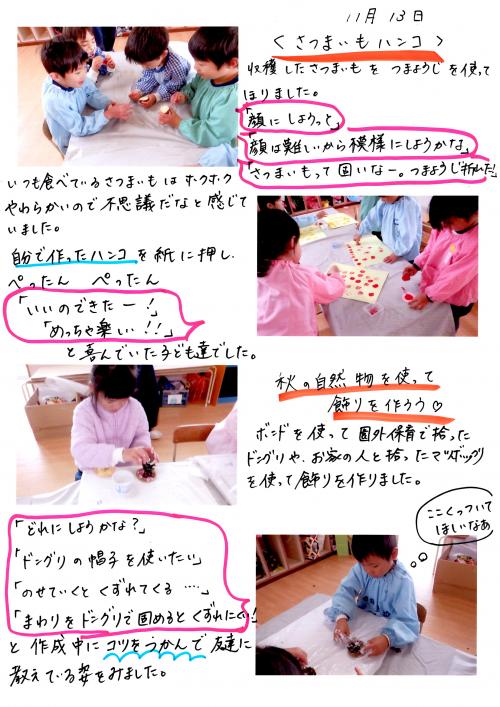 11月13日
<さつまいもハンコ>
収穫したさつまいもを つまようじを使って
ほりました。
「顔にしようっと」
「顔は難しいから模様にしようかな」
「さつまいもって固いなー。つまようじ折れた!」
いつも食べているさつまいもはホクホク
やわらかいので不思議だなと感じて
いました。
自分で作ったハンコを紙に押し、
ぺったん ぺったん
「いいのできたー!」
「めっちゃ楽しい!!」
と喜んでいた子ども達でした。
秋の自然物を使って
飾りを作ろう♡
ボンドを使って園外保育で拾った
ドングリや、お家の人と拾ったマツボックリ
を使って飾りを作りました。
ここくっついて
ほしいなあ
「どれにしようかな?」
「ドングリの帽子を使いたい」
「のせていくとくずれてくる‥‥」
「まわりをドングリで固めるとくずれにくい!」
と作成中にコツをつかんで友達に
教えている姿をみました。